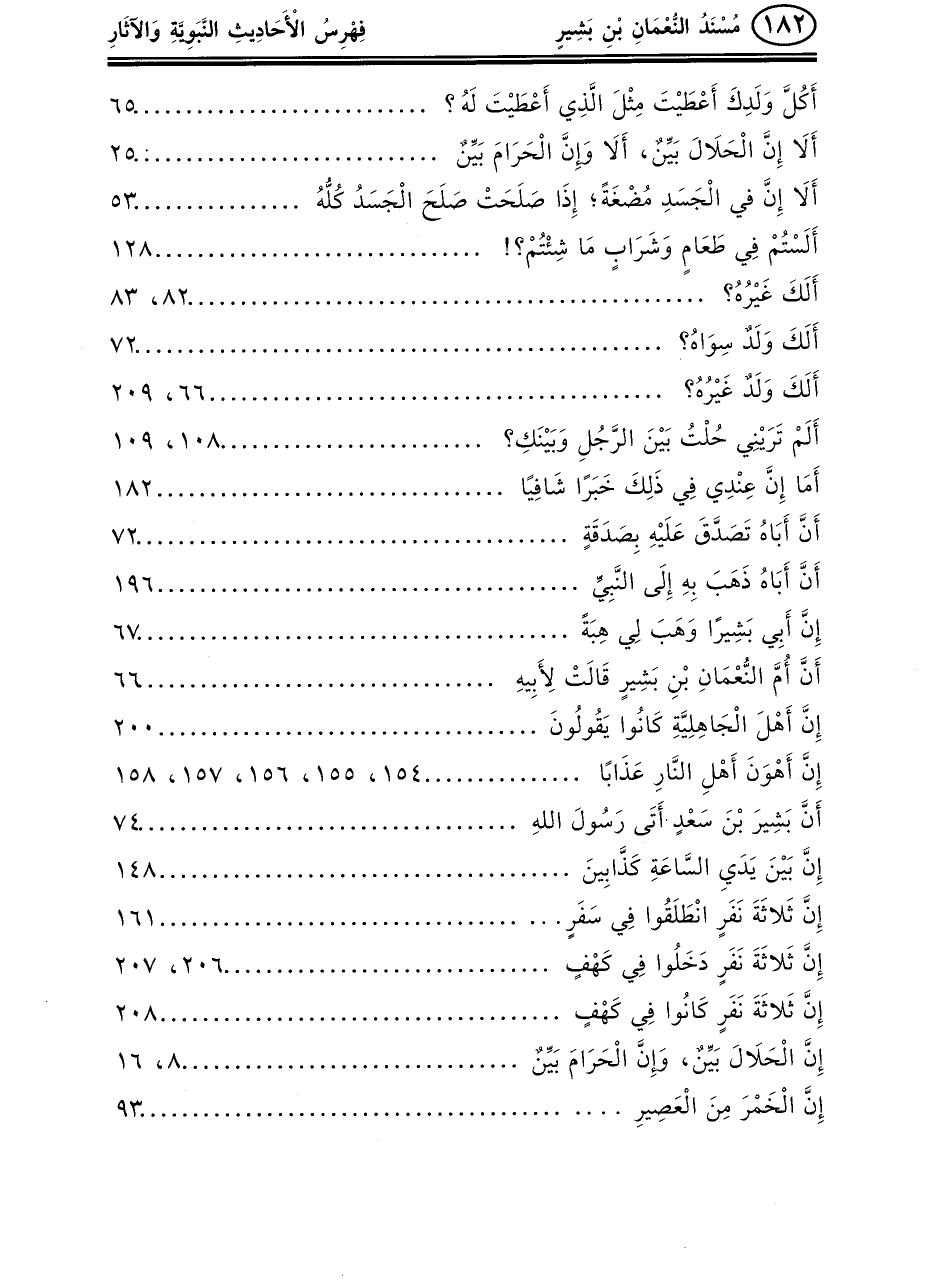 ١٨٢ مُسْنَدُ النُّعْمَانِ بْنِ بَشِيرٍ فِهْرِسُ الْأَحَادِيثِ النَّبَوِيَّةِ وَالآثَارِ
أَكُلَّ وَلَدِكَ أَعْطَيْتَ مِثْلَ الَّذِي أَعْطَيْتَ لَهُ؟ .............................. ٦٥
أَلَا إِنَّ الْحَلَالَ بَيِّنٌ، أَلَا وَإِنَّ الْحَرَامَ بَيِّنٌ .............................. ٢٥
أَلَا إِنَّ في الْجَسَدِ مُضْغَةً؛ إِذَا صَلَحَتْ صَلَحَ الْجَسَدُ كُلُّهُ .............................. ٥٣
أَلَسْتُمْ فِي طَعَامٍ وَشَرَابٍ مَا شِئْتُمْ؟! .............................. ١٢٨
أَلَكَ غَيْرُهُ؟ .............................. ٨٢، ٨٣
أَلَكَ وَلَدٌ سِوَاهُ؟ .............................. ٧٢
أَلَكَ وَلَدٌ غَيْرُهُ؟ .............................. ٦٦، ٢٠٩
أَلَمْ تَرَيْنِي حُلْتُ بَيْنَ الرَّجُلِ وَبَيْنَكِ؟ .............................. ١٠٨، ١٠٩
أَمَا إِنَّ عِنْدِي فِي ذَلِكَ خَبَرًا شَافِيًا .............................. ١٨٢
أَنَّ أَبَاهُ تَصَدَّقَ عَلَيْهِ بِصَدَقَةٍ .............................. ٧٢
أَنَّ أَبَاهُ ذَهَبَ بِهِ إِلَى النَّبِيِّ .............................. ١٩٦
إِنَّ أَبِي بَشِيرًا وَهَبَ لِي هِبَةً .............................. ٦٧
أَنَّ أُمَّ النُّعْمَانِ بْنِ بَشِيرٍ قَالَتْ لِأَبِيهِ .............................. ٦٦
إِنَّ أَهْلَ الْجَاهِلِيَّةِ كَانُوا يَقُولُونَ .............................. ٢٠٠
إِنَّ أَهْوَنَ أَهْلِ النَّارِ عَذَابًا .............................. ١٥٤، ١٥٥، ١٥٦، ١٥٧، ١٥٨
أَنَّ بَشِيرَ بْنَ سَعْدٍ أَتَى رَسُولَ اللهِ .............................. ٧٤
إِنَّ بَيْنَ يَدَيِ السَّاعَةِ كَذَّابِينَ .............................. ١٤٨
إِنَّ ثَلاثَةَ نَفَرٍ انْطَلَقُوا فِي سَفَرٍ .............................. ١٦١
إِنَّ ثَلَاثَةَ نَفَرٍ دَخَلُوا فِي كَهْفٍ .............................. ٢٠٦، ٢٠٧
إِنَّ ثَلَاثَةَ نَفَرٍ كَانُوا فِي كَهْفٍ .............................. ٢٠٨
إِنَّ الْحَلَالَ بَيِّنٌ، وَإِنَّ الْحَرَامَ بَيِّنٌ .............................. ٨، ١٦
إِنَّ الْخَمْرَ مِنَ الْعَصِيرِ .............................. ٩٣